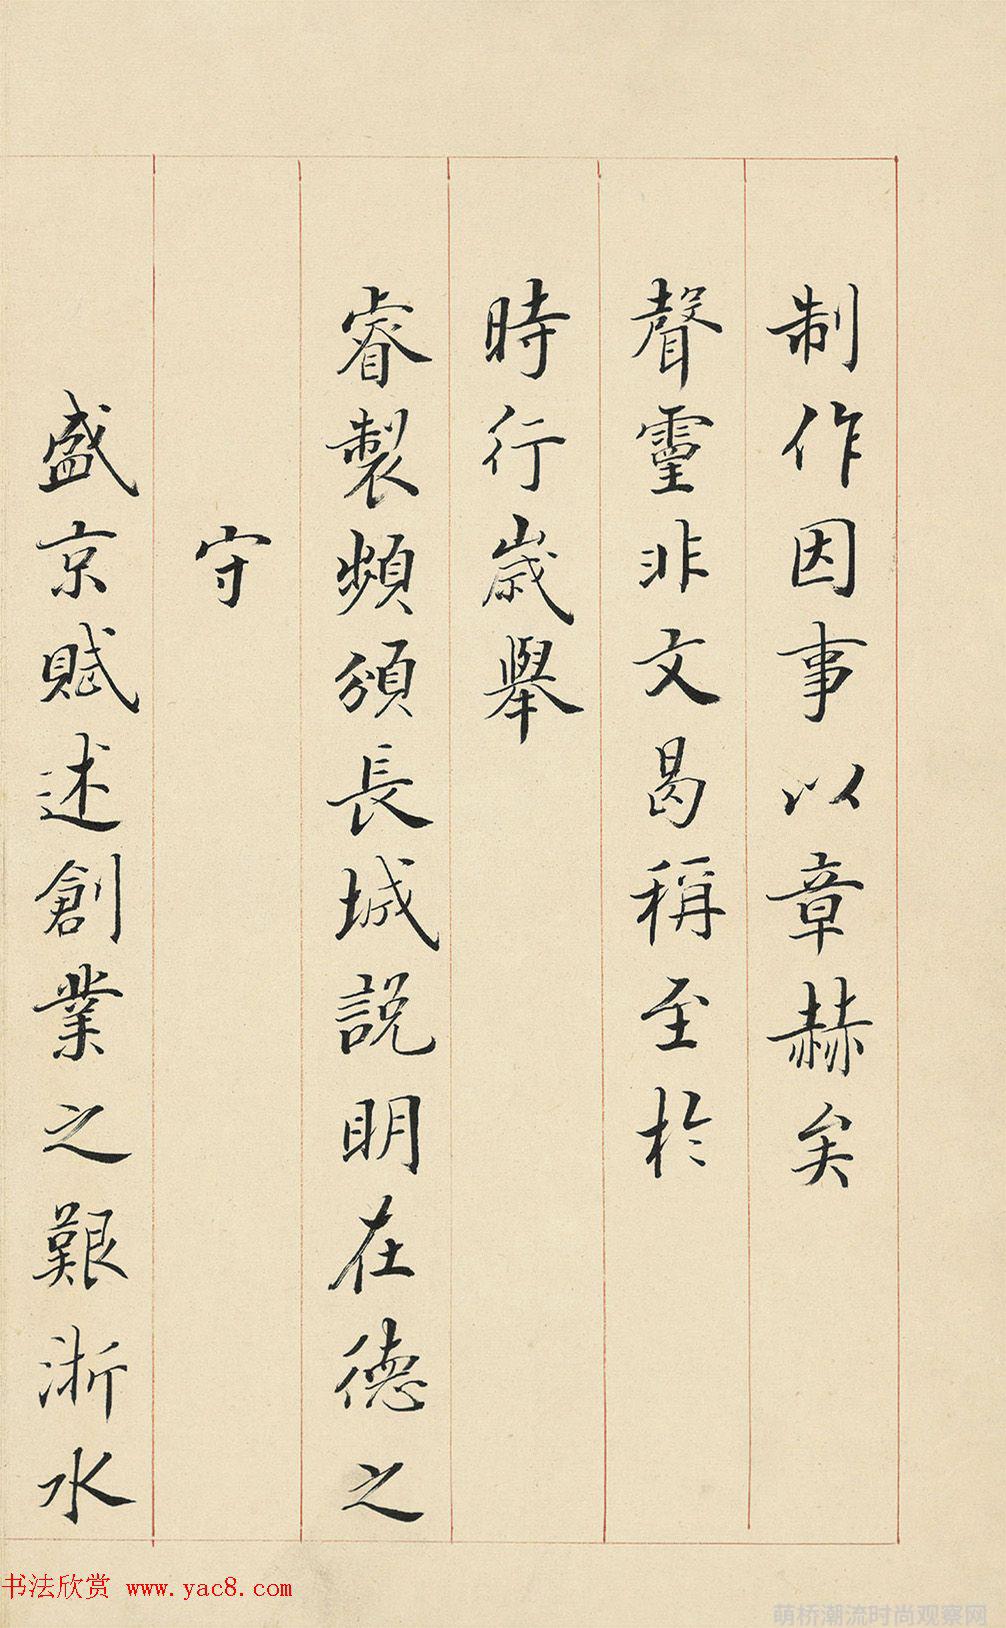 制作因事以章赫矣
聲靈非文曷稱至於
時行歲舉
睿製頻頒長城說明在德之
守
盛京賦述創業之艱浙水
书法欣赏 www.yac8.com
萌桥潮流时尚观察网